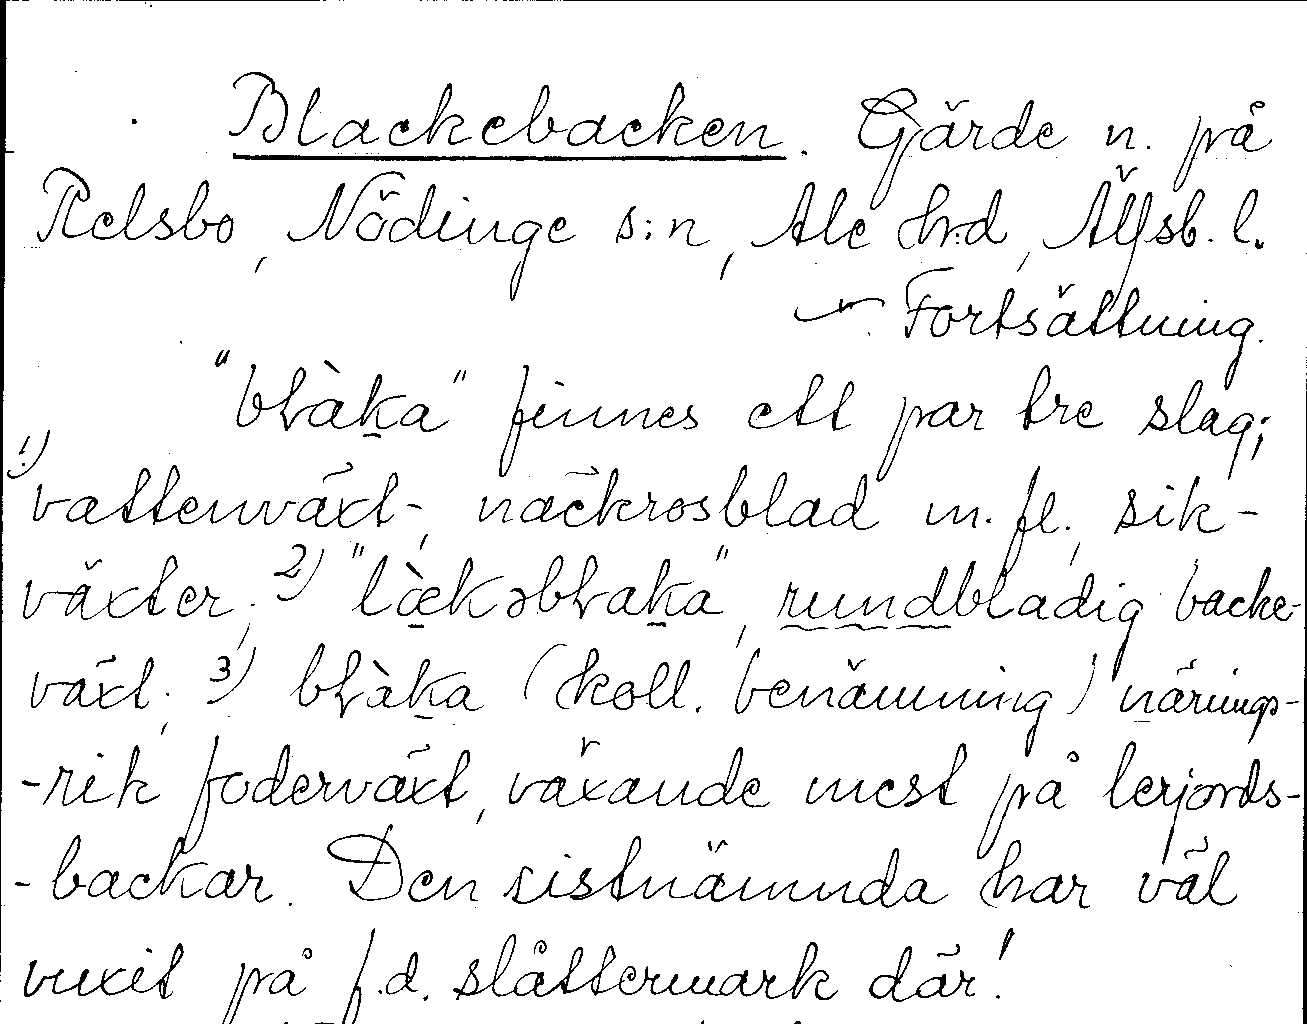 Blackebacken. Gärde n. på
Relsbo, Nödinge s:n, Ale h:d, Älfsb. l.
Fortsättning.
"bƚàka" finnes ett par tre slag;
1) vattenväxt-, näckrosblad m. fl., sik-
växter; 2) "lækəbƚaka", rundbladig backe-
växt; 3) bƚàka (koll. benämning) närings-
-rik foderväxt, växande mest på lerjords-
-backar. Den sistnämnda har väl
vuxit på f.d. slåttermark där!